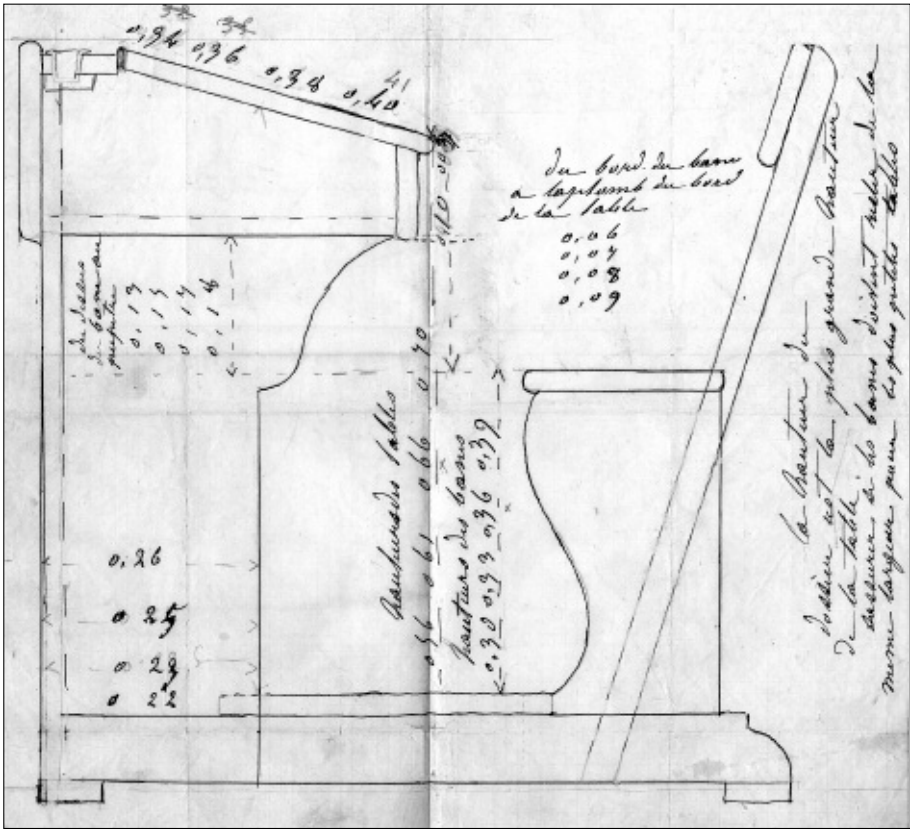 0,34 0,36 0,38 0,40
41
du bord du banc
a laplomb du bord
de la table
0,06
0,07
0,08
0,09
du dessus
du banc au
pupitre
0 13
0 15
0 17
0 18
hauteur des tables
0 56 0 61 0 66 0 70
hauteurs des bancs
0,30 0,33 0,36 0,39
0,26
0 25
0 23
0 22
la hauteur du
dossier est la plus grande hauteur
de la table
assurer si les bancs doivent être de la
meme largeur pour les plus petites tables